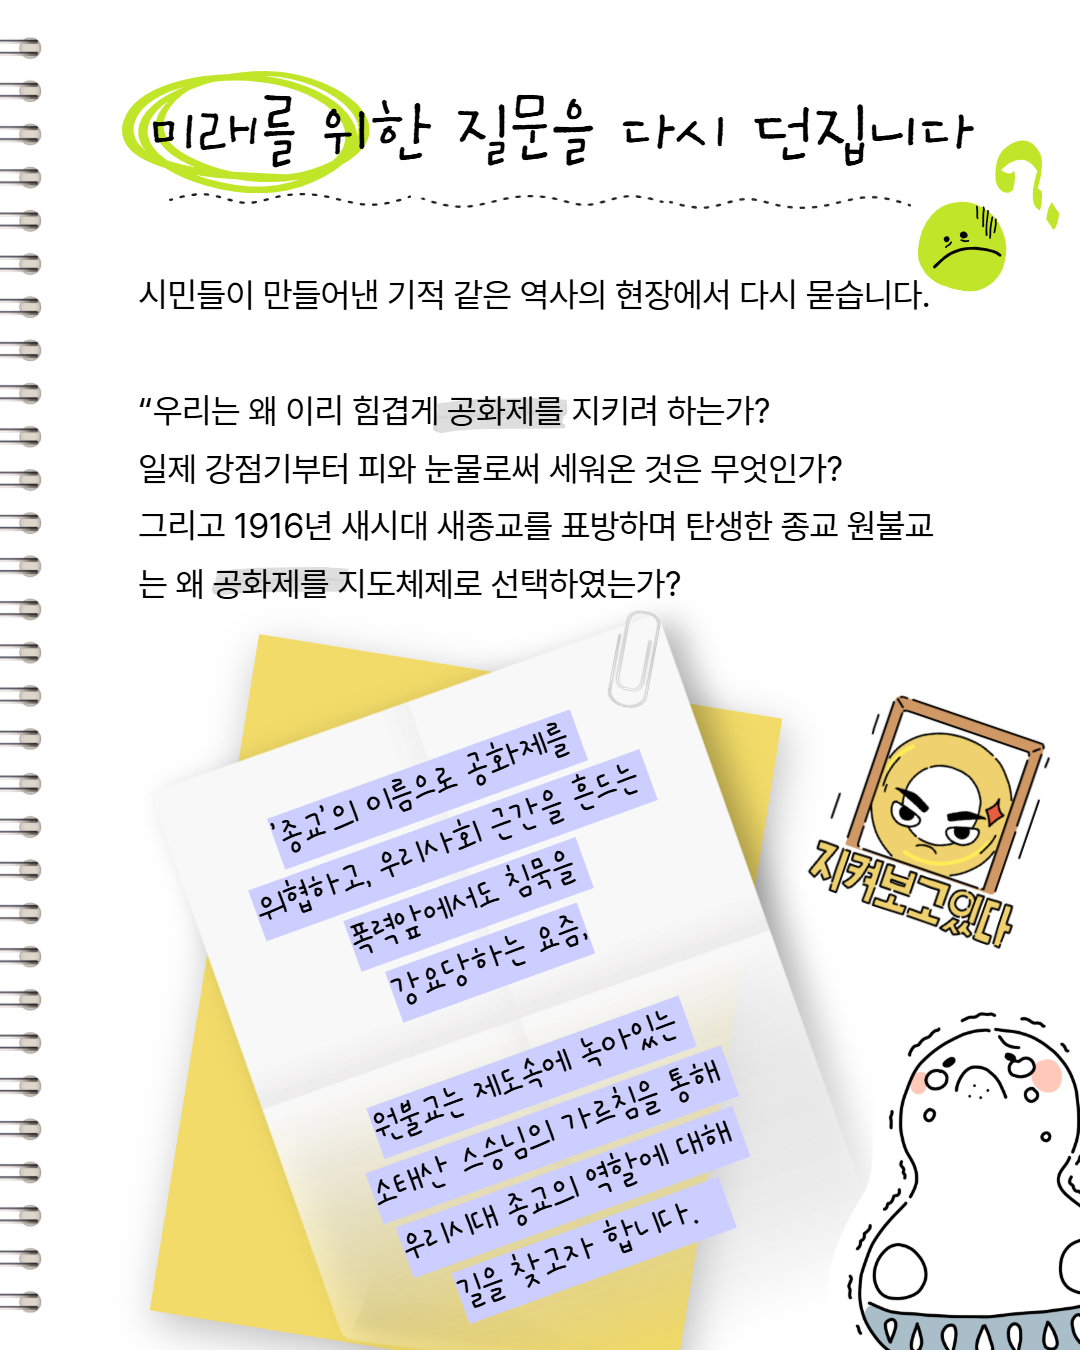 미래를 위한 질문을 다시 던집니다
시민들이 만들어낸 기적 같은 역사의 현장에서 다시 묻습니다.
“우리는 왜 이리 힘겹게 공화제를 지키려 하는가?
일제 강점기부터 피와 눈물로써 세워온 것은 무엇인가?
그리고 1916년 새시대 새종교를 표방하며 탄생한 종교 원불교
는 왜 공화제를 지도체제로 선택하였는가?
'종교'의 이름으로 공화제를
위협하고, 우리사회 근간을 흔드는
폭력앞에서도 침묵을
강요당하는 요즘,
원불교는 제도속에 녹아있는
소태산 스승님의 가르침을 통해
우리시대 종교의 역할에 대해
길을 찾고자 합니다.
지켜보고있다